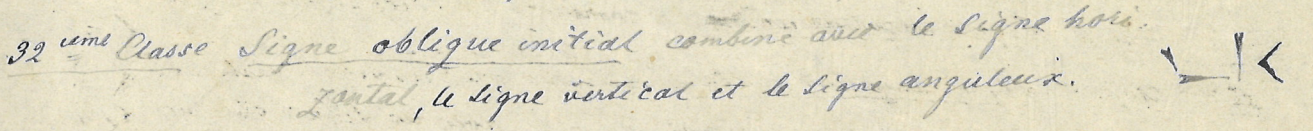 32ième Classe Signe oblique initial combiné avec le signe hori-
zontal, le signe vertical et le signe anguleux.